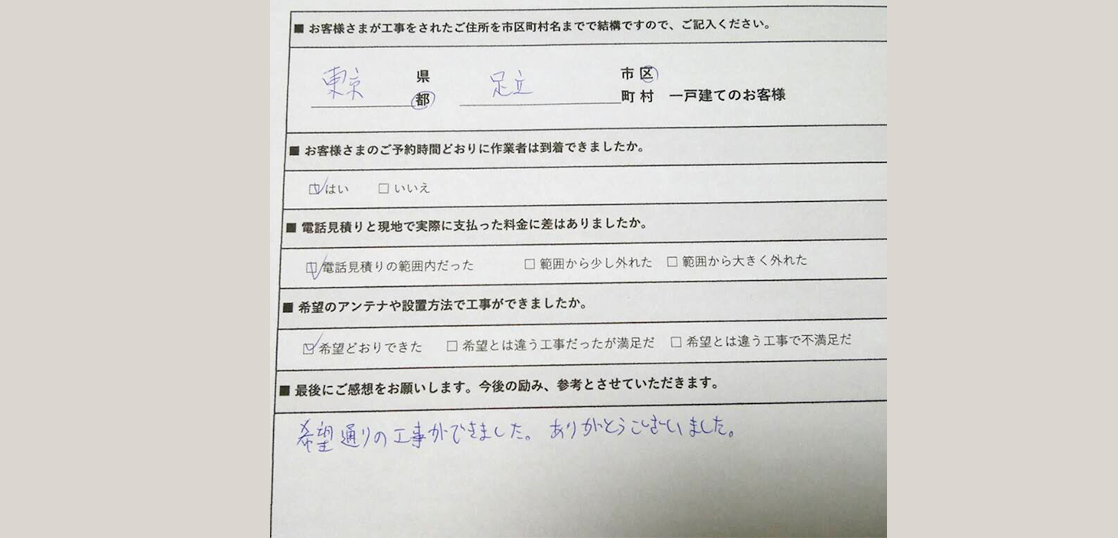 ■ お客様さまが工事をされたご住所を市区町村名までで結構ですので、ご記入ください。
東京 県 足立 市 区
都 町 村 一戸建てのお客様
■ お客様さまのご予約時間どおりに作業者は到着できましたか。
☑はい □いいえ
■ 電話見積りと現地で実際に支払った料金に差はありましたか。
☑電話見積りの範囲内だった □範囲から少し外れた □範囲から大きく外れた
■ 希望のアンテナや設置方法で工事ができましたか。
☑希望どおりできた □希望とは違う工事だったが満足だ □希望とは違う工事で不満足だ
■ 最後にご感想をお願いします。今後の励み、参考とさせていただきます。
希望通りの工事ができました。ありがとうございました。